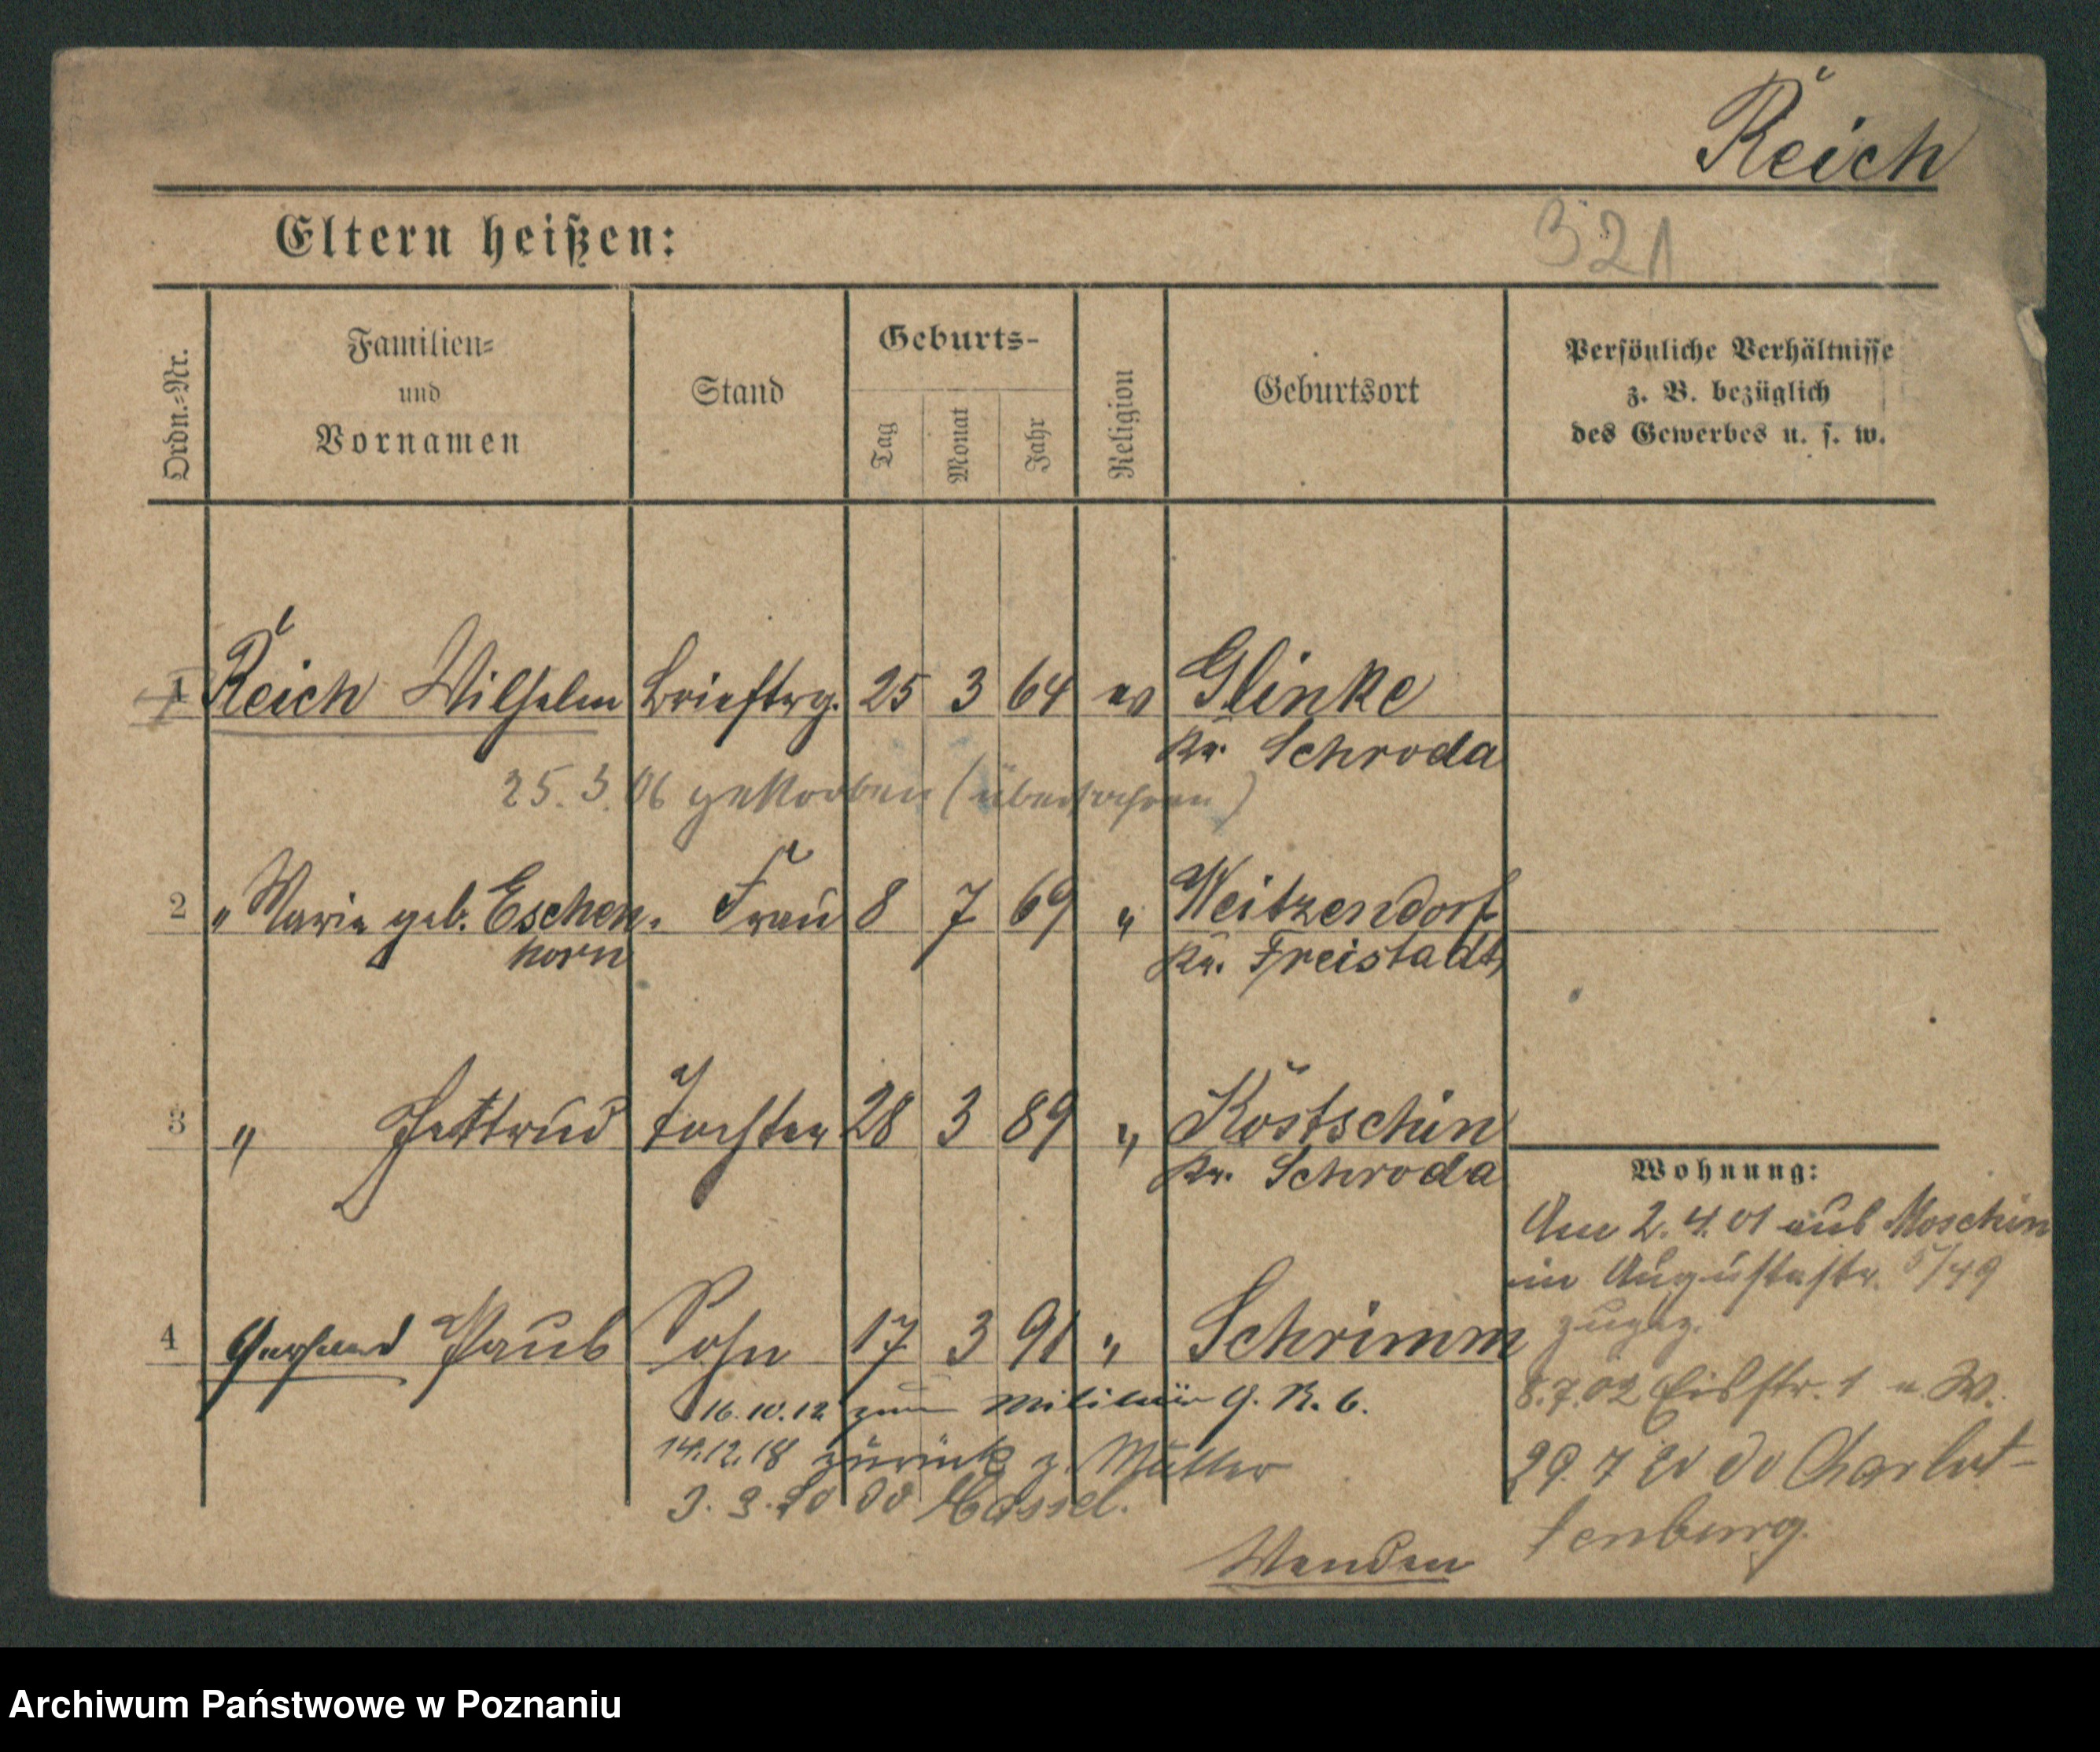 Reich
Eltern heißen:
321
Ordn.-Nr.
Familien-
und
Vornamen
Stand
Geburts-
Tag
Monat
Jahr
Religion
Geburtsort
Persönliche Verhältnisse
z. B. bezüglich
des Gewerbes u. s. w.
1 Reich Wilhelm Brieftrg. 25 3 64 ev Glinke
Kr. Schroda
25. 3. 06 gestorben (überfahren)
2 " Marie geb. Eschen- Frau 8 7 69 " Weitzendorf
horn
Kr. Freistadt
3 " Tochter 28 3 89 " Köstschin
Kr. Schroda
4 Gerhard Paul Sohn 17 3 91 " Schrimm
16.10.12 zum Militair G. R. 6.
14.12.18 zurück z. Mutter
3. 3. 20 Cassel.
Wenden
Wohnung:
Am 2. 4. 01 aus Moschin
in Augustastr. 5/49
zugez.
8.7.02 1
29. 7 Charlot-
tenburg.
Archiwum Państwowe w Poznaniu